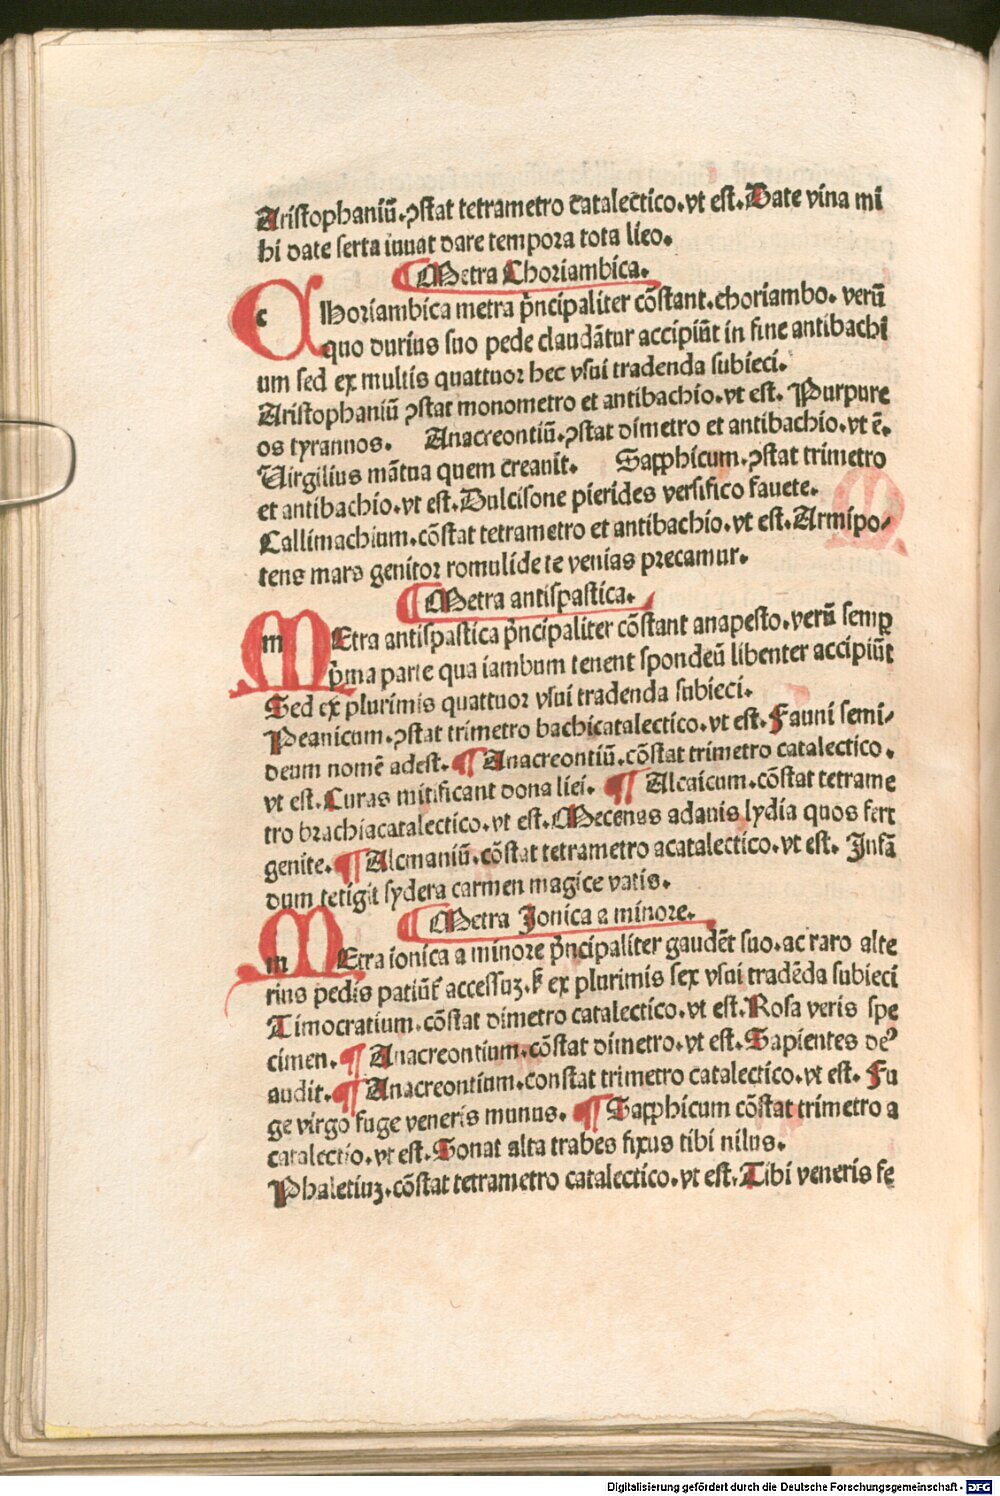 Aristophaniū.ꝯstat tetrametro catalectico.vt est.Date vina mi
hi date serta iuuat dare tempora tota lieo.
Metra Choriambica.
cHoriambica metra p̄ncipaliter cōstant.choriambo. verū
quo durius suo pede claudātur accipiūt in fine antibachi
um sed ex multis quattuor hec vsui tradenda subieci.
Aristophaniū ꝯstat monometro et antibachio.vt est. Purpure
os tyrannos. Anacreontiū.ꝯstat dimetro et antibachio.vt ē.
Virgilius mātua quem creauit. Sapphicum.ꝯstat trimetro
et antibachio.vt est.Dulcisone pierides versifico fauete.
Callimachium.cōstat tetrametro et antibachio.vt est.Armipo/
tens mars genitor romulide te venias precamur.
Metra antispastica.
mEtra antispastica p̄ncipaliter cōstant anapesto.verū semꝑ
p̄ma parte qua iambum tenent spondeū libenter accipiūt
Sed ex plurimis quattuor vsui tradenda subieci.
Peanicum.ꝯstat trimetro bachicatalectico.vt est.Fauni semi/
deum nomē adest. ¶ Anacreontiū.cōstat trimetro catalectico.
vt est.Curas mitificant dona liei. ¶ Alcaicum.cōstat tetrame
tro brachiacatalectico.vt est.Mecenas adauis lydia quos fert
genite. ¶ Alcmaniū.cōstat tetrametro acatalectico.vt est. Infā
dum tetigit sydera carmen magice vatis.
Metra Ionica a minore.
mEtra ionica a minore p̄ncipaliter gaudēt suo.ac raro alte
rius pedis patiūt᷑ accessuꝫ.ꝭ ex plurimis sex vsui tradēda subieci
Timocratium.cōstat dimetro catalectico.vt est.Rosa veris spe
cimen. ¶ Anacreontium.cōstat dimetro.vt est.Sapientes deꝰ
audit. ¶ Anacreontium.constat trimetro catalectico.vt est. Fu
ge virgo fuge veneris munus. ¶ Sapphicum cōstat trimetro a
catalectio.vt est.Sonat alta trabes fixus tibi nilus.
Phaletiuꝫ.cōstat tetrametro catalectico.vt est.Tibi veneris fe
Digitalisierung gefördert durch die Deutsche Forschungsgemeinschaft - DFG